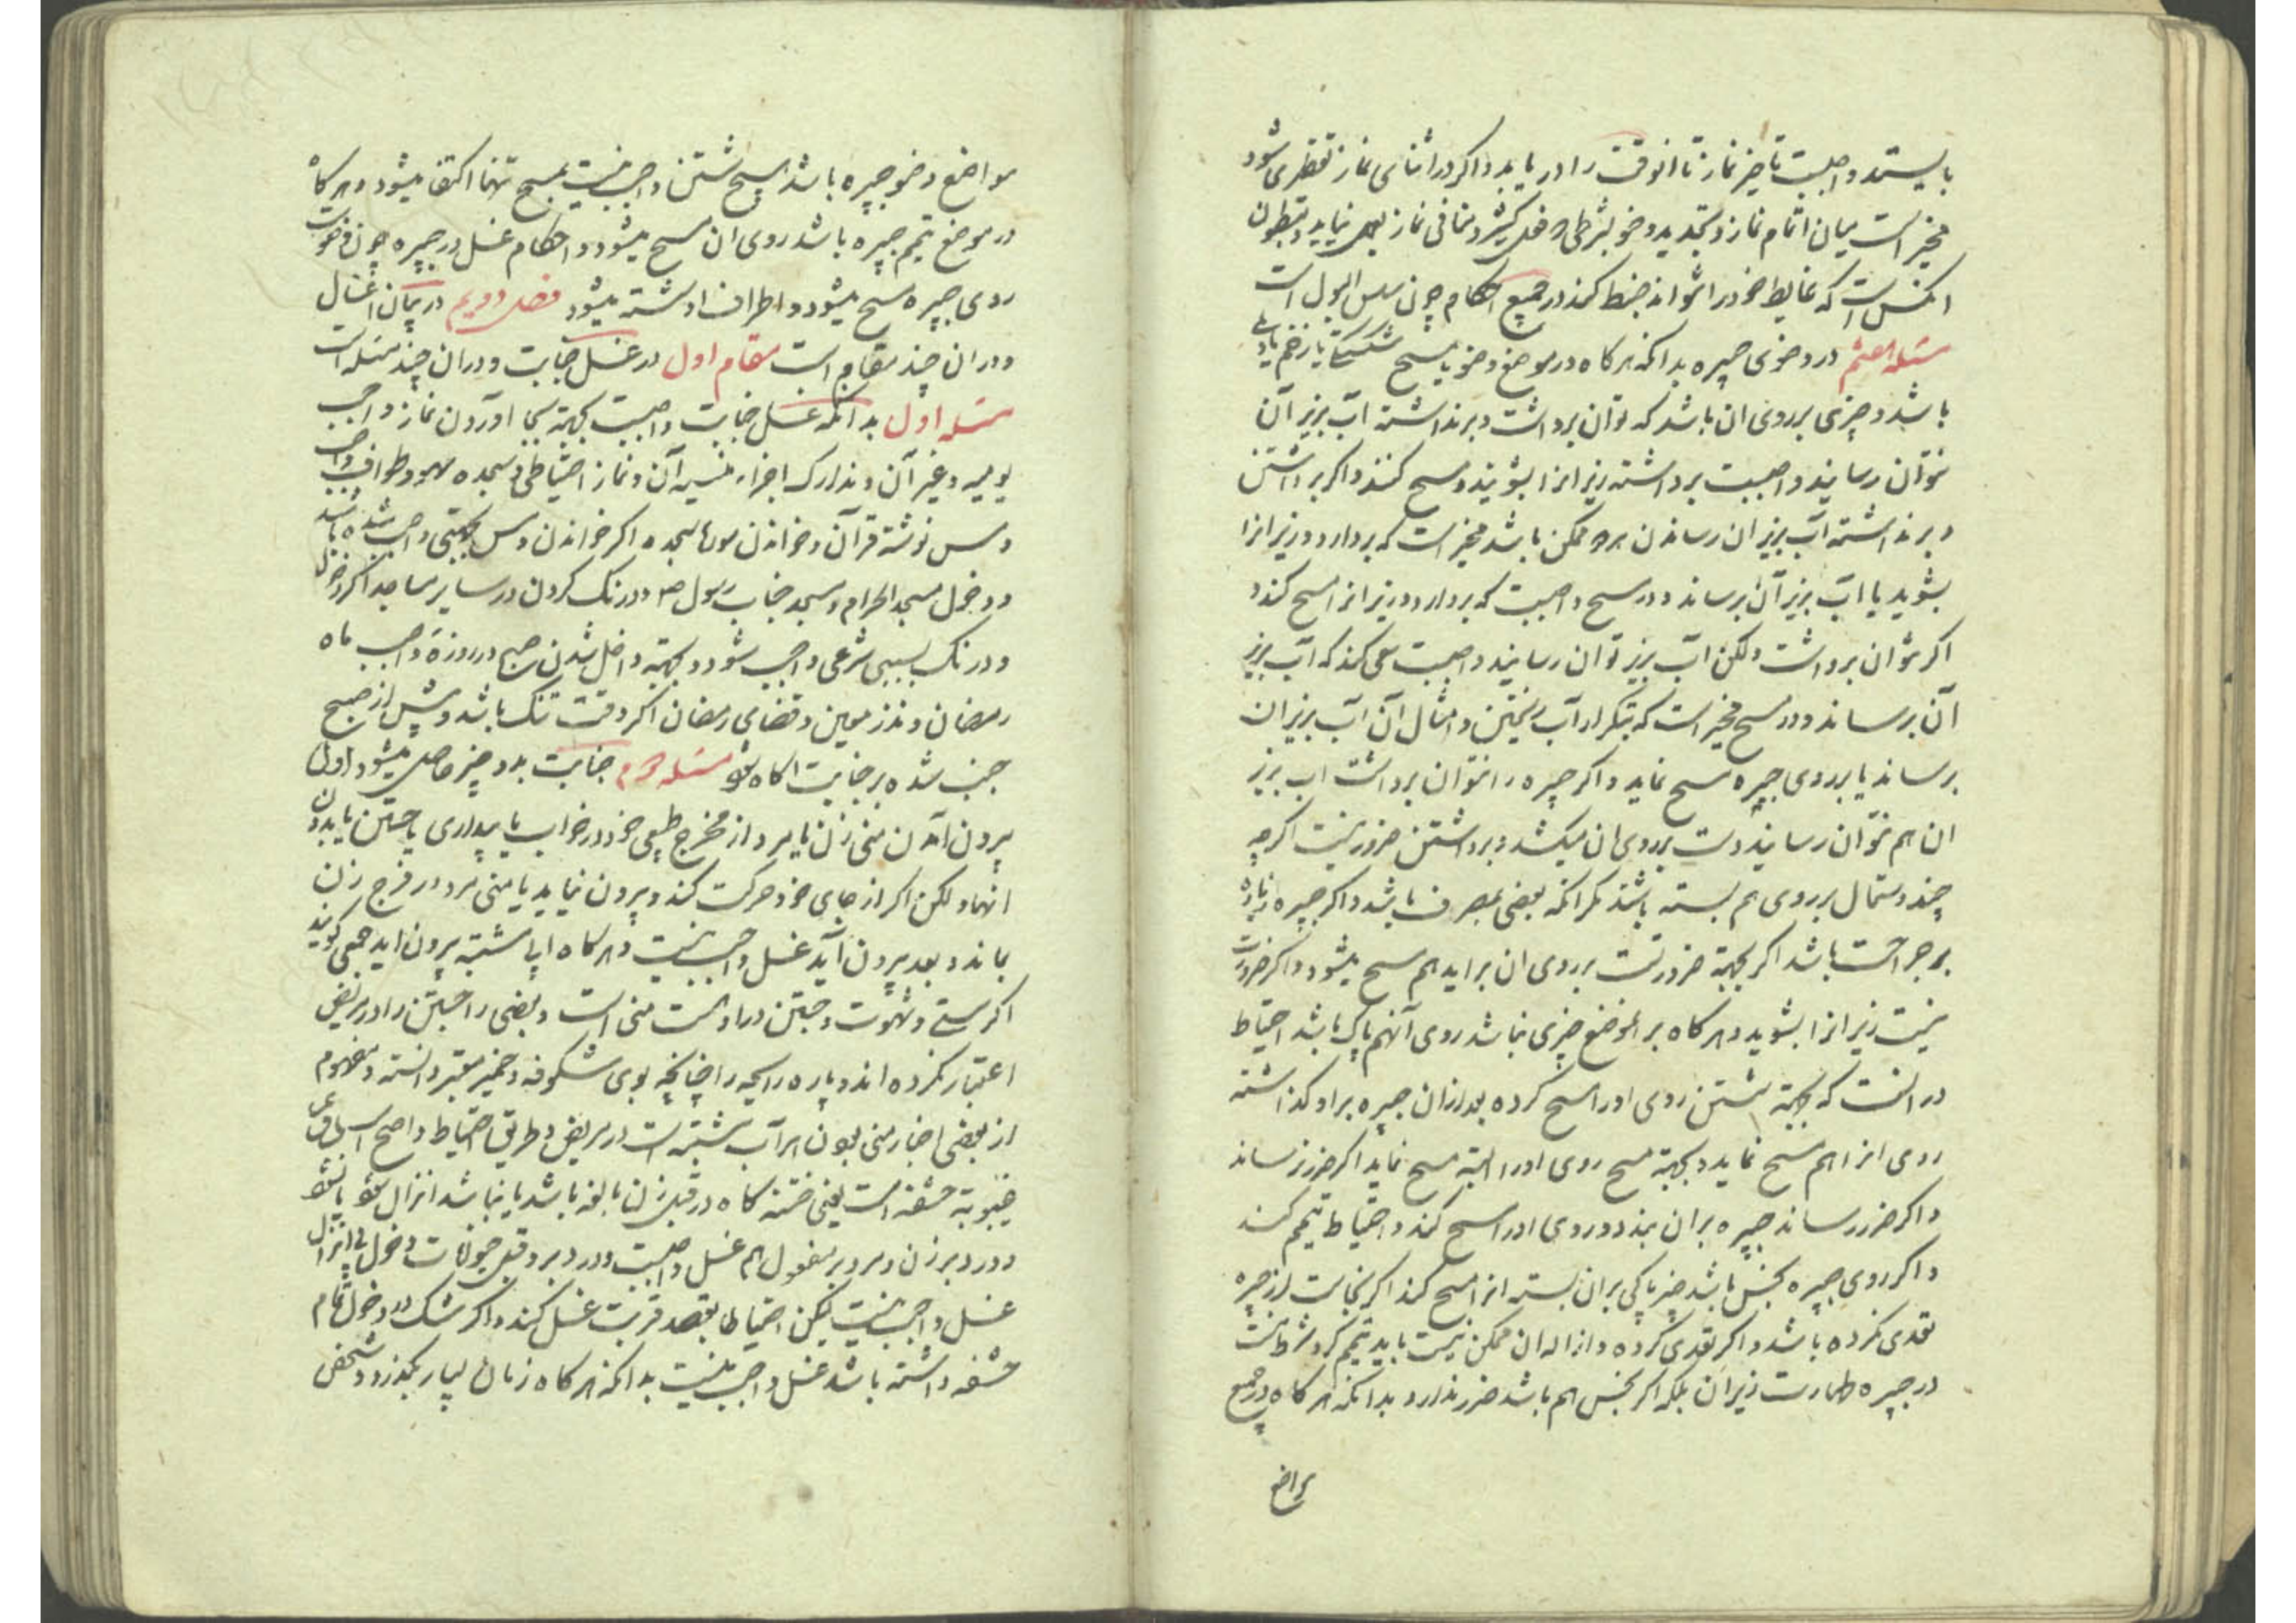 بایستد واجبست تاخیر نماز تا انوقت را دریابد و اگر در اثنای نماز تقطیری شود
مخیر است میان اتمام نماز و تجدید وضو بشرطی که فعل کثیر و منافی نماز بعمل نیاید و مبطون
انکس است که غایط خود را نتواند ضبط کند در جمیع احکام چون سلس البول است
مسئله هشتم در وضوی جبیره بدانکه هر کاه در موضع وضو یا مسح شکستگی یا زخم یا دملی
باشد و چیزی بر روی ان باشد که توان برداشت و برنداشته آب بزیر آن
نتوان رسانید واجبست برداشته زیر انرا بشویند و مسح کنند و اکر برداشتن
و برنداشته آب بزیر ان رساندن هر دو ممکن باشد مخیر است که بردارد و زیر انرا
بشوید یا آب بزیر آن برساند و در مسح واجبست که بردارد و زیر انرا مسح کند و
اکر نتوان برداشت ولکن آب بزیر توان رسانید واجبست سعی کند که آب بزیر
آن برساند و در مسح مخیر است که بتکرار آب ریختن و امثال آن آب بزیر ان
برساند یا بر روی جبیره مسح نماید و اکر جبیره را نتوان برداشت اب بزیر
ان هم نتوان رسانید دست بر روی ان میکشد و برداشتن ضرور نیست اکرچه
چند دستمال بر روی هم بسته باشند مکر انکه بعضی بمصرف باشد و اکر جبیره زیاده
بر جراحت باشد اکر بجهة ضرورتست بر روی ان براید هم مسح میشود و اکر ضرورت
نیست زیر انرا بشوید و هر کاه بر الموضع چیزی نباشد روی آنهم پاک باشد احتیاط
در انست که بجهة شستن روی او را مسح کرده بعد از ان جبیره بر او کذاشته
روی انرا هم مسح نماید و بجهة مسح روی او را البته مسح نماید اکر ضرر نرساند
و اکر ضرر رساند جبیره بر ان بندد و روی او را مسح کند و احتیاط تیمم کند
و اکر روی جبیره نجس باشد چیز پاکی بر ان بسته انرا مسح کند اکر نجاست از جبیره
تعدی نکرده باشد و اکر تعدی کرده و ازاله ان ممکن نیست باید تیمم کرد و شرط نیست
در جبیره طهارت زیر ان بلکه اکر نجس هم باشد ضرر ندارد بدانکه هر کاه در جمیع
مواضع
مواضع وضو جبیره باشد مسح شستن واجب نیست بمسح تنها اکتفا میشود و هر کاه
در موضع تیمم جبیره باشد روی ان مسح میشود و احکام غسل در جبیره چون وضوست
روی جبیره مسح میشود و اطراف او شسته میشود فصل دویم در بیان اغسال
و در ان چند مقام است مقام اول در غسل جنابت و در ان چند مسئله است
مسئله اول بدانکه غسل جنابت واجبست بجهة بجا اوردن نماز واجب
یومیه و غیر آن و تدارک اجزاء منسیه آن و نماز احتیاطی و سجده سهو و طواف واجب
و مس نوشته قرآن و خواندن سورهای سجده اکر خواندن و مس بجهتی واجب شده باشد
و دخول مسجد الحرام و مسجد جناب رسول ص و درنک کردن در سایر مساجد اکر دخول
و درنک بسببی شرعی واجب شود و بجهة داخل شدن صبح در روزۀ واجب ماه
رمضان و نذر معین و قضای رمضان اکر وقت تنک باشد و پیش از صبح
جنب شده بر جنابت اکاه شود مسئله دویم جنابت بدو چیز حاصل میشود اول
بیرون آمدن منی زن یا مرد از مخرج طبیعی خود در خواب یا بیداری با جستن یا بدون
انها ولکن اکر از جای خود حرکت کند و بیرون نیاید یا منی مرد در فرج زن
بماند و بعد بیرون آید غسل واجب نیست و هر کاه آبی مشتبه بیرون اید جمعی کویند
اکر سستی و شهوت و جستن دارد منی است و بعضی را جستن را در مریض
اعتبار نکرده اند و پاره رایحه را چنانچه بوی شکوفه و خمیر معتبر دانسته و مفهوم
از بعضی اخبار منی بودن هر آب مشتبه است در مریض و طریق احتیاط واضح است
غیبوبة حشفه است یعنی ختنه کاه در قبل زن بالغه باشد یا نباشد انزال شود یا نشود
و در دبر زن و مرد بر مفعول هم غسل واجبست و در دبر و قبل حیوانات دخول بی انزال
غسل واجب نیست لیکن احتیاطا بقصد قربت غسل کند و اکر شک در دخول تمام
حشفه داشته باشد غسل واجب نیست بدانکه هر کاه زمان بسیار بگذرد و شخص